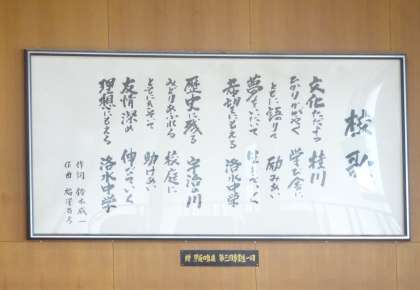 校歌
文化ただよう 桂川
ひかりかがやく 学び舎に
ともに語りて 励みあい
夢をいだいて 伸びていく
希望にもえる 洛水中学
歴史に残る 宇治の川
みどりあふれる 校庭に
ともにきそいて 助けあい
友情深め 伸びていく
理想にもえる 洛水中学
作詞 鈴木成一
作曲
贈 第三回卒業生一同